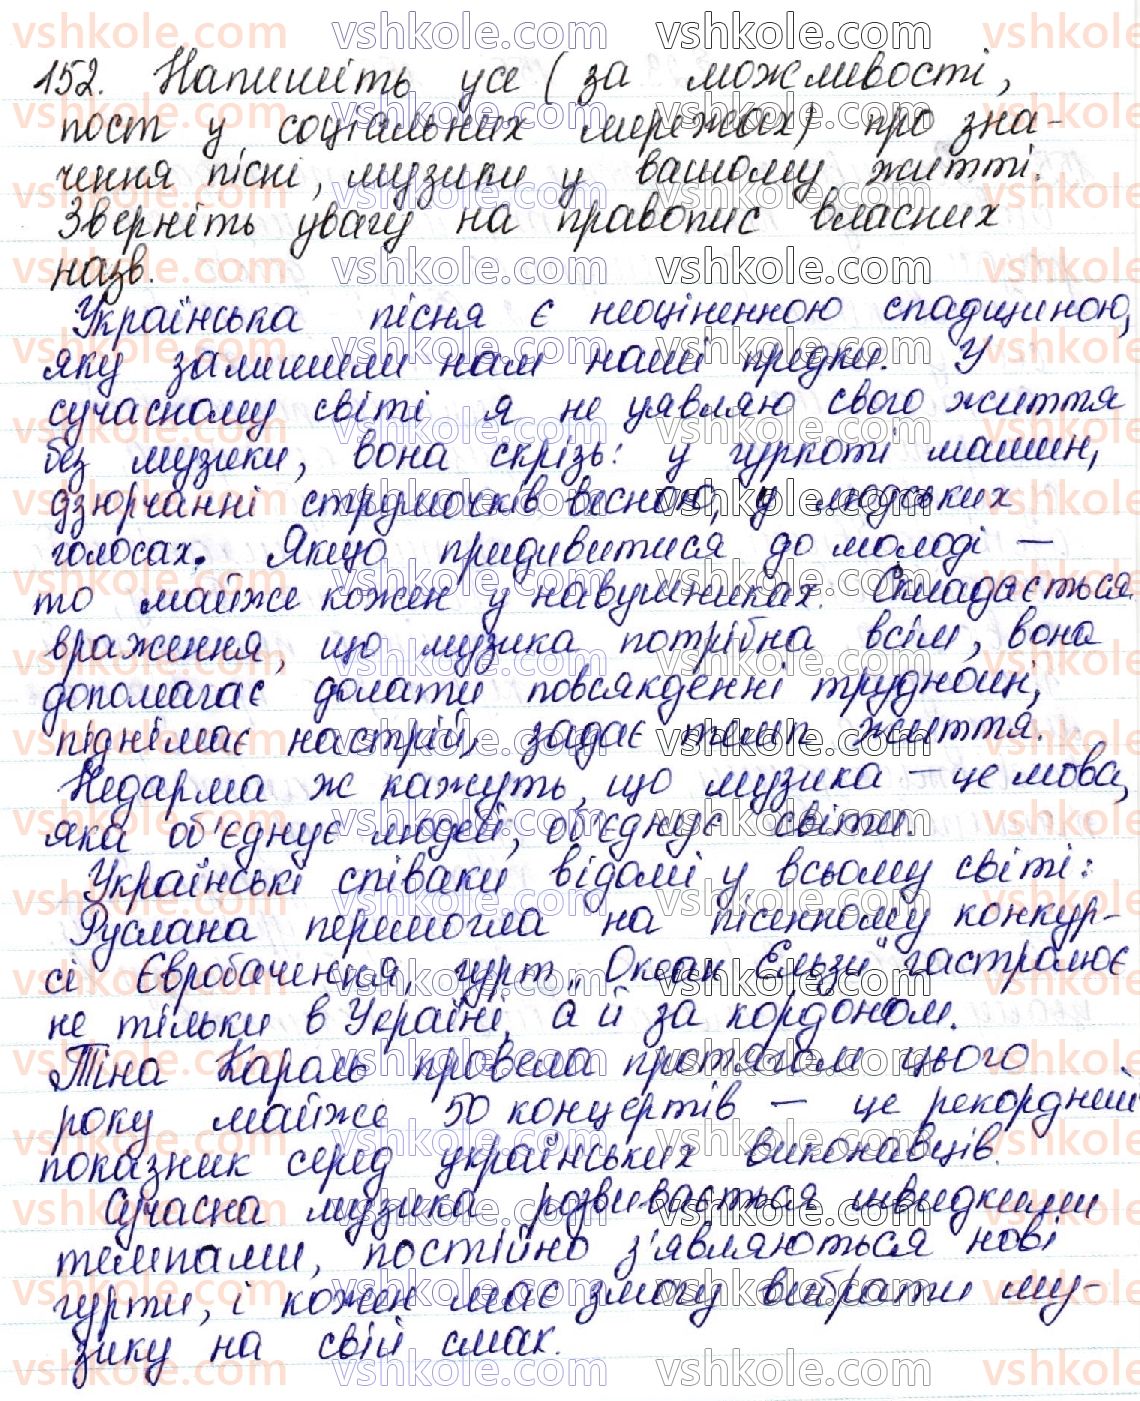 152. Напишіть усе (за можливості,
пост у соціальних мережах) про зна-
чення пісні, музики у вашому житті.
Зверніть увагу на правопис власних
назв.
Українська пісня є неоціненною спадщиною,
яку залишили нам наші предки. У
сучасному світі я не уявляю свого життя
без музики, вона скрізь: у гуркоті машин,
дзюрчанні струмочків весною, у людських
голосах. Якщо придивитися до молоді —
то майже кожен у навушниках. Складається
враження, що музика потрібна всім, вона
допомагає долати повсякденні труднощі,
піднімає настрій, задає темп життя.
Недарма ж кажуть, що музика – це мова,
яка об'єднує людей, об'єднує світи.
Українські співаки відомі у всьому світі:
Руслана перемогла на пісенному конкур-
сі Євробачення, гурт „Океан Ельзи" гастролює
не тільки в Україні, а й за кордоном.
Тіна Кароль провела протягом цього
року майже 50 концертів – це рекордний
показник серед українських виконавців.
Сучасна музика розвивається швидкими
темпами, постійно з'являються нові
гурти, і кожен має змогу вибрати му-
зику на свій смак.